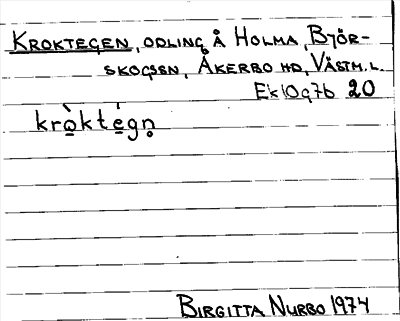 KROKTEGEN, ODLING Å HOLMA, BJÖR-
SKOGSSN, ÅKERBO HD, VÄSTM. L.
Ek 10g7b 20
krò̱kté̱gn̥
BIRGITTA NURBO 1974